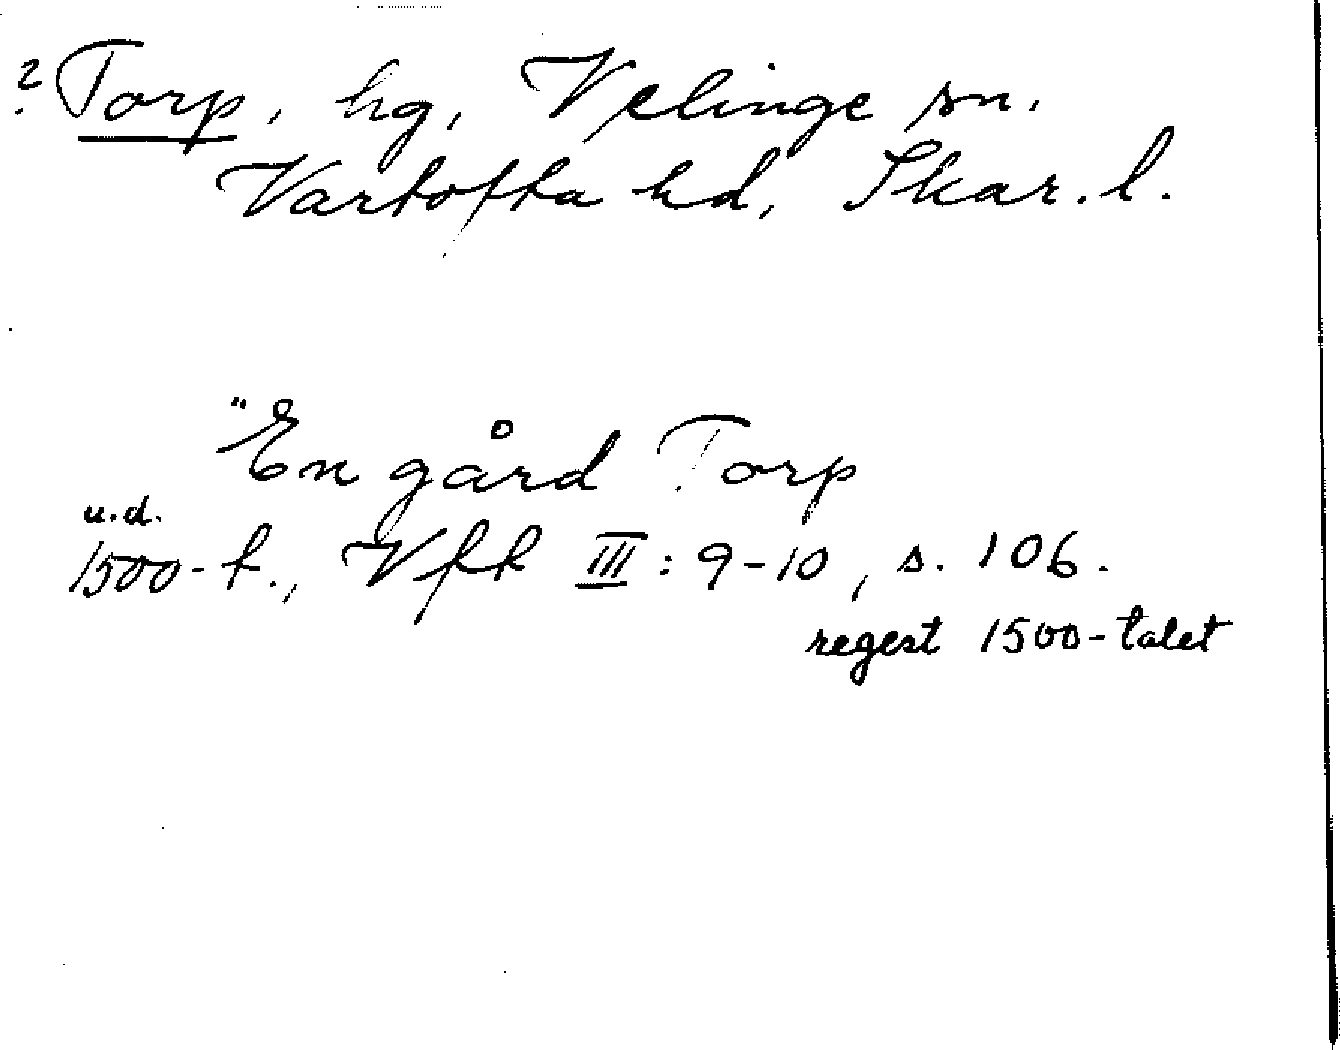 ? Torp, hg, Velinge sn.
Vartofta hd, Skar. l.
"En gård Torp
u.d.
1500-t., Vfk III: 9-10, s. 106.
regest 1500-talet